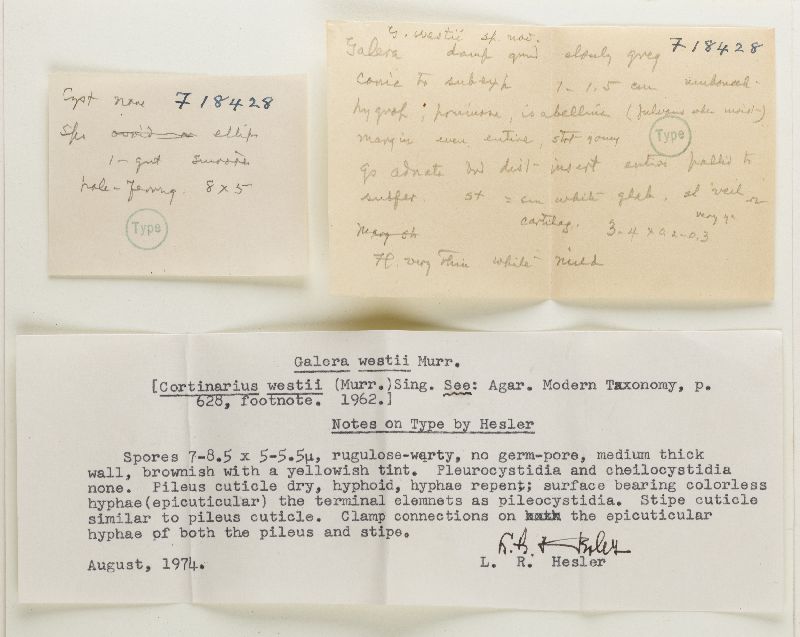 Cyst none 718428
Sps ovoid ellip
1-gut smooth
pale-ferrug. 8 x 5
Type
G. westii sp. nov.
Galera damp grnd closely greg 718428
conic to subexp 1-1.5 cm umbonate
hygroph, pruinose, isabelline (fulvous when moist)
margin even, entire,
Type
gs adnate entire pallid to
subfer. st = cm white glab.
cartilag. 3-4 x 0.2-0.3
Marg st
Fl. very thin white mild
Galera westii Murr.
[Cortinarius westii (Murr.)Sing. See: Agar. Modern Taxonomy, p.
628, footnote. 1962.]
Notes on Type by Hesler
Spores 7-8.5 x 5-5.5µ, rugulose-warty, no germ-pore, medium thick
wall, brownish with a yellowish tint. Pleurocystidia and cheilocystidia
none. Pileus cuticle dry, hyphoid, hyphae repent; surface bearing colorless
hyphae(epicuticular) the terminal elemnets as pileocystidia. Stipe cuticle
similar to pileus cuticle. Clamp connections on the epicuticular
hyphae of both the pileus and stipe.
L. R. Hesler
August, 1974. L. R. Hesler